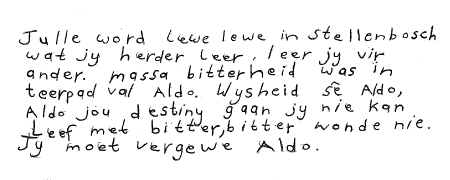 Julle word lewe lewe in stellenbosch
wat jy herder leer, leer jy vir
ander. massa bitterheid was in
teerpad val Aldo. Wysheid sê Aldo,
Aldo jou destiny gaan jy nie kan
Leef met bitter,bitter wonde nie.
Jy moet vergewe Aldo.